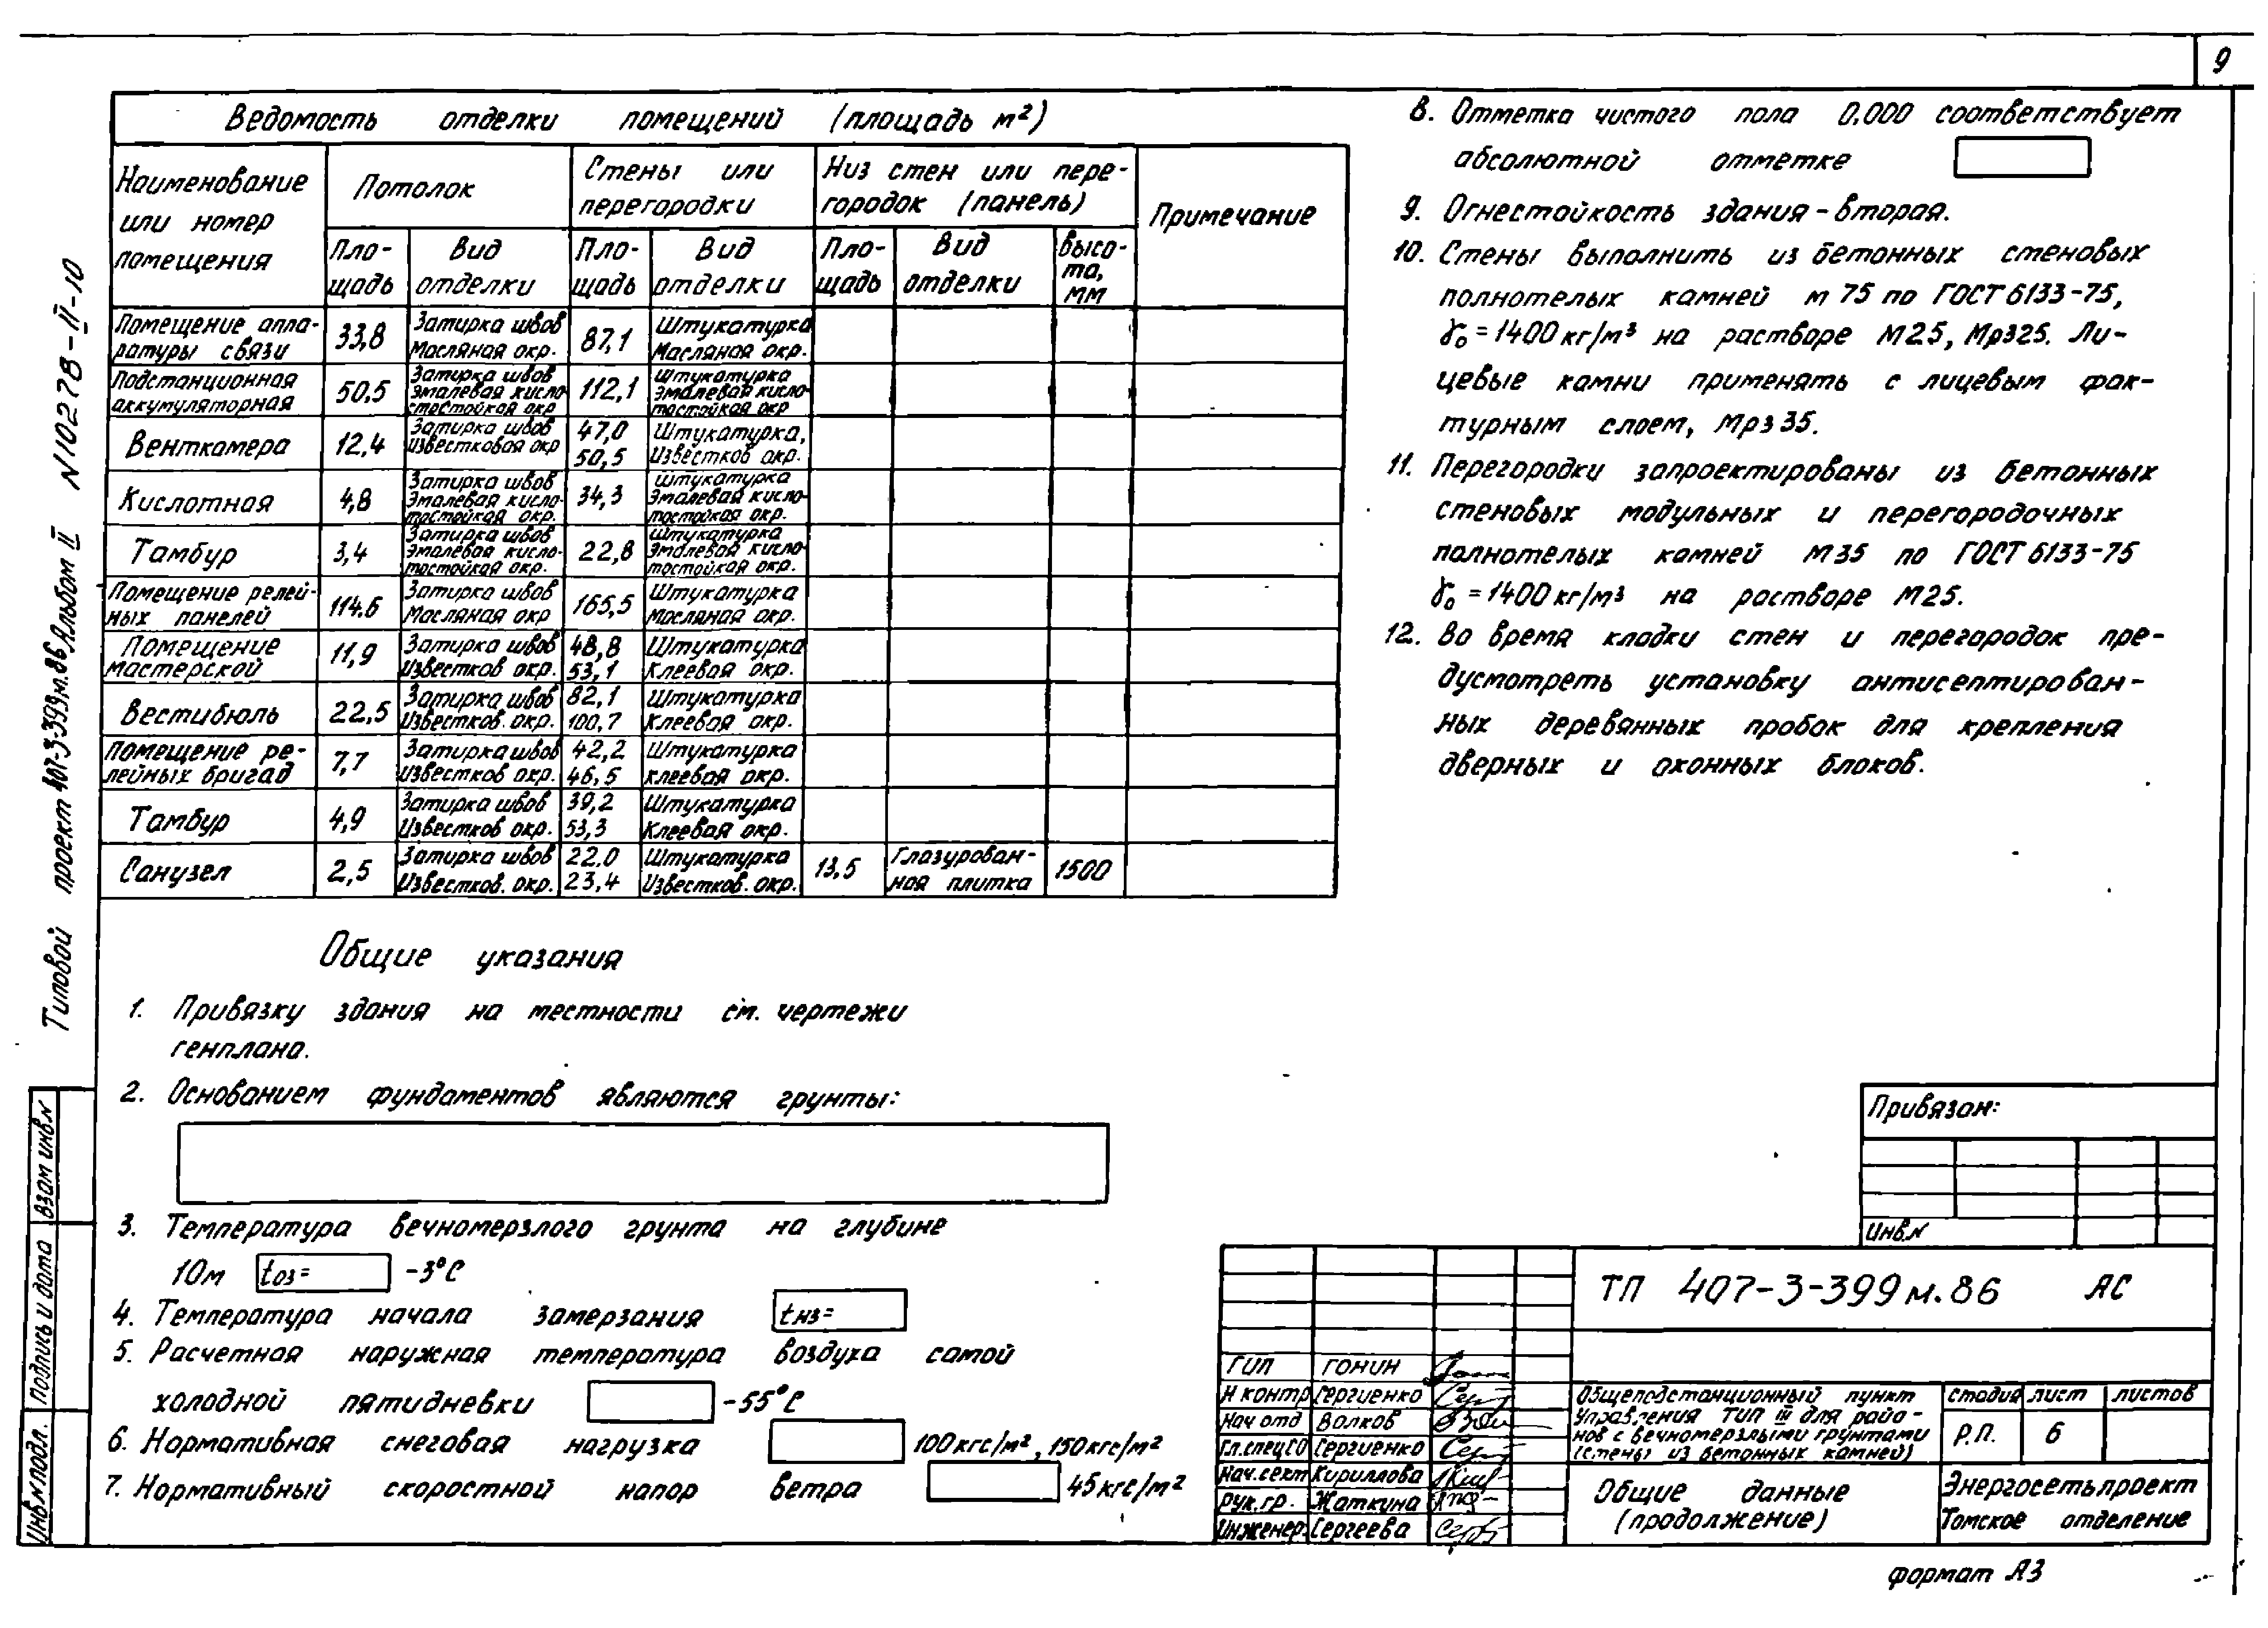 9
Ведомость отделки помещений (площадь м²)
Наименование или номер помещения
Потолок
Стены или перегородки
Низ стен или перегородок (панель)
Примечание
Площадь
Вид отделки
Площадь
Вид отделки
Площадь
Вид отделки
Высота, мм
Помещение аппаратуры связи 33,8 Затирка швов Масляная окр. 87,1 Штукатурка Масляная окр.
Подстанционная аккумуляторная 50,5 Затирка швов Эмалевая кислостостойкая окр 112,1 Штукатурка Эмалевая кислотостойкая окр
Венткамера 12,4 Затирка швов Известковая окр 47,0 50,5 Штукатурка, Известков окр.
Кислотная 4,8 Затирка швов Эмалевая кислотостойкая окр. 34,3 Штукатурка Эмалевая кислотостойкая окр.
Тамбур 3,4 Затирка швов Эмалевая кислотостойкая окр. 22,8 Штукатурка Эмалевая кислотостойкая окр.
Помещение релейных панелей 114.6 Затирка швов Масляная окр 165,5 Штукатурка Масляная окр.
Помещение мастерской 11,9 Затирка швов Известков окр. 48,8 53,1 Штукатурка Клеевая окр.
Вестибюль 22,5 Затирка швов Известков. окр. 82,1 100,7 Штукатурка Клеевая окр.
Помещение релейных бригад 7,7 Затирка швов Известков окр. 42,2 46,5 Штукатурка клеевая окр.
Тамбур 4,9 Затирка швов Известков окр. 39,2 53,3 Штукатурка Клеевая окр.
Санузел 2,5 Затирка швов Известков. окр. 22,0 23,4 Штукатурка Известков. окр. 13,5 Глазурованная плитка 1500
Общие указания
1. Привязку здания на местности см. чертежи
генплана.
2. Основанием фундаментов являются грунты:
3. Температура вечномерзлого грунта на глубине
10м tоз= -3°С
4. Температура начала замерзания tнз=
5. Расчетная наружная температура воздуха самой
холодной пятидневки -55°С
6. Нормативная снеговая нагрузка 100кгс/м², 150кгс/м²
7. Нормативный скоростной напор ветра 45кгс/м²
8. Отметка чистого пола 0.000 соответствует
абсолютной отметке
9. Огнестойкость здания - вторая.
10. Стены выполнить из бетонных стеновых
полнотелых камней м 75 по ГОСТ 6133-75,
γ₀ = 1400 кг/м³ на растворе М25, Мрз25. Ли-
цевые камни применять с лицевым фак-
турным слоем, Мрз 35.
11. Перегородки запроектированы из бетонных
стеновых модульных и перегородочных
полнотелых камней М35 по ГОСТ 6133-75
γ₀ = 1400 кг/м³ на растворе М25.
12. Во время кладки стен и перегородок пре-
дусмотреть установку антисептирован-
ных деревянных пробок для крепления
дверных и оконных блоков.
Типовой проект 407-3-399м.86 Альбом II N10278-II-10
Взам инв.N
Подпись и дата
Инв.N подл.
Привязан:
Инв.N
ТП 407-3-399м.86 АС
ГИП Гонин
Н контр Сергиенко
Нач отд Волков
Гл.спец СО Сергиенко
Нач.сект Кириллова
Рук.гр. Жаткина
Инженер. Сергеева
Общеподстанционный пункт
управления тип III для райо-
нов с вечномерзлыми грунтами
(стены из бетонных камней)
стадия лист листов
Р.П. 6
Общие данные
(продолжение)
Энергосетьпроект
Томское отделение
формат А3